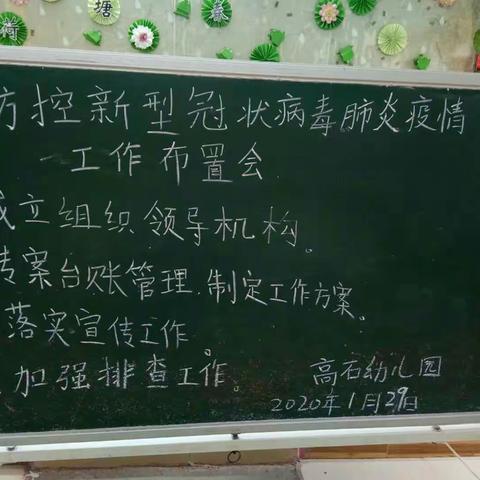 荷 塘 春
防控新型冠状病毒肺炎疫情
工作布置会
成立组织领导机构。
案台账管理.制定工作方案。
落实宣传工作。
加强排查工作。
高石幼儿园
2020年1月29日